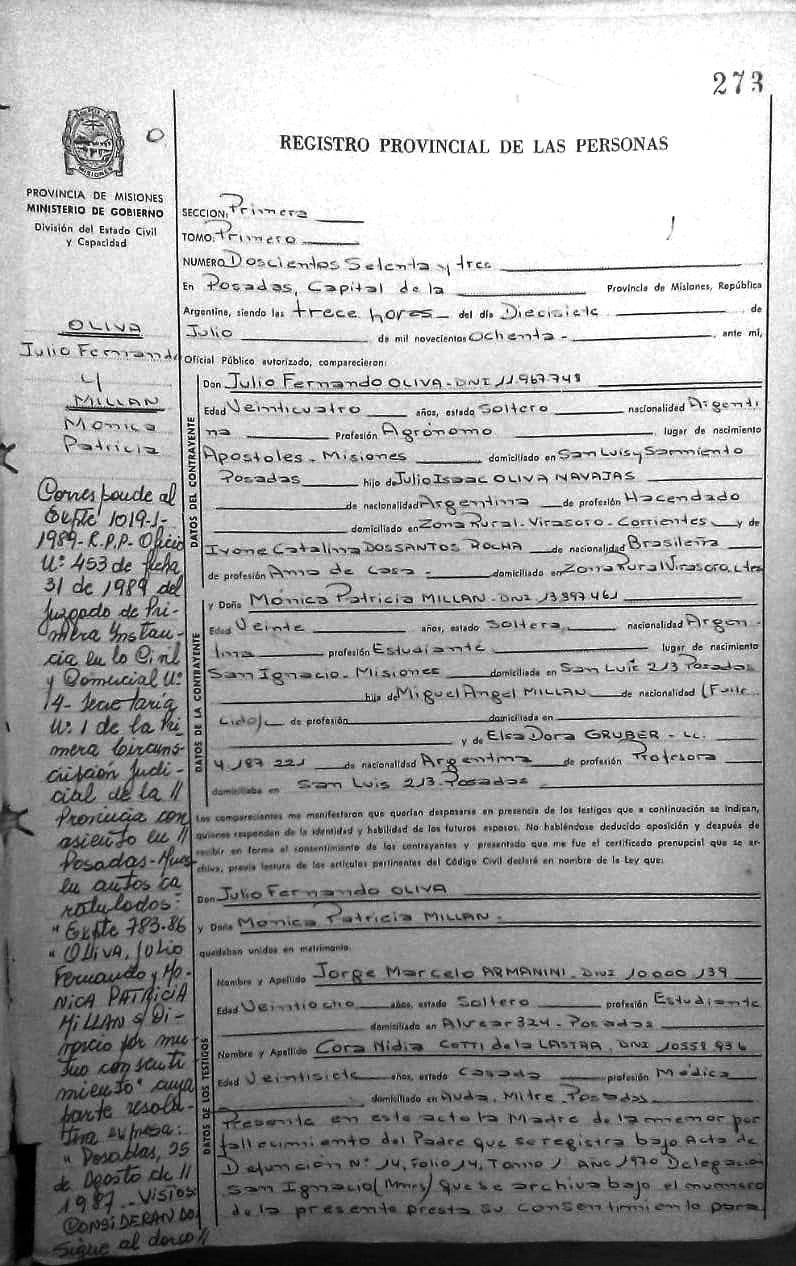 273
MISIONES
REGISTRO PROVINCIAL DE LAS PERSONAS
PROVINCIA DE MISIONES
MINISTERIO DE GOBIERNO
División del Estado Civil
y Capacidad
OLIVA
Julio Fernando
y
MILLAN
Monica
Patricia
Corresponde al
Expte 1019-1-
1989-R.P.P-Oficio
Nº 453 de fecha
31 de 1989 del
Juzgado de Pri-
mera Instan-
cia en lo Civil
y Comercial Nº
14- Secretaría
Nº 1 de la Pri
mera Circuns-
cripción Judi-
cial de la //
Provincia con
asiento en //
Posadas-
en autos ca
ratulados:
"Expte 783-86
"OLIVA, Julio
Fernando y MO-
NICA PATRICIA
MILLAN s/Di-
vorcio por mu-
tuo consenti
miento" cuya
parte resolu-
tiva expresa:
"Posadas, 25
de Agosto de //
1987.-VISTOS:
CONSIDERANDO
Sigue al dorso//
SECCION: Primera
TOMO: Primero
NUMERO Doscientos Setenta y tres
En Posadas, Capital de la Provincia de Misiones, República
Argentina, siendo las trece hores del día Diecisiete de
Julio de mil novecientos Ochenta - , ante mi,
Oficial Público autorizado, comparecieron:
DATOS DEL CONTRAYENTE
Don Julio Fernando OLIVA - DNI 11.967.748
Edad Veinticuatro años, estado Soltero nacionalidad Argenti
na Profesión Agrónomo , lugar de nacimiento
Apostoles - Misiones domiciliado en San Luis y Sarmiento
Posadas hijo de Julio Isaac OLIVA NAVAJAS
de nacionalidad Argentina de profesión Hacendado
domiciliado en Zona Rural - Virasoro - Corrientes y de
Ivone Catalina DOSSANTOS ROCHA de nacionalidad Brasileña
de profesión Ama de Casa - domiciliado en Zona Rural Virasoro, Ctes
DATOS DE LA CONTRAYENTE
y Doña Mónica Patricia MILLAN - DNI 13.897.461
Edad Veinte años, estado Soltera, nacionalidad Argen-
tina profesión Estudiante lugar de nacimiento
San Ignacio - Misiones domiciliada en San Luis 213 Posadas
hija de Miguel Angel MILLAN de nacionalidad (Falle-
cido), de profesión domiciliado en
y de Elsa Dora GRUBER - LC.
4.187.221 de nacionalidad Argentina de profesión Profesora
domiciliada en San Luis 213 - Posadas
Los comparecientes me manifestaron que querían desposarse en presencia de los testigos que a continuación se indican,
quienes responden de la identidad y habilidad de los futuros esposos. No habiéndose deducido oposición y después de
recibir en forma el consentimiento de los contrayentes y presentado que me fue el certificado prenupcial que se ar-
chiva, previa lectura de los artículos pertinentes del Código Civil declaré en nombre de la Ley que:
Don Julio Fernando OLIVA
y Doña Monica Patricia MILLAN -
quedaban unidos en matrimonio.
DATOS DE LOS TESTIGOS
Nombre y Apellido Jorge Marcelo ARMANINI - DNI 10.000.139
Edad Veintiocho años, estado Soltero profesión Estudiante
domiciliado en Alvear 324 - Posadas
Nombre y Apellido Cora Nidia COTTI de la LASTRA, DNI 10.558.936
Edad Veintisiete años, estado Casada profesión Médica
domiciliado en Avda. Mitre Posadas -
Presente en este acto la Madre de la menor por
fallecimiento del Padre que se registra bajo Acta de
Defunción Nº 14, Folio 14, Tomo 1º Año 1970 Delegación
San Ignacio (Mnes) que se archiva bajo el mumero
de la presente presta su consentimiento para